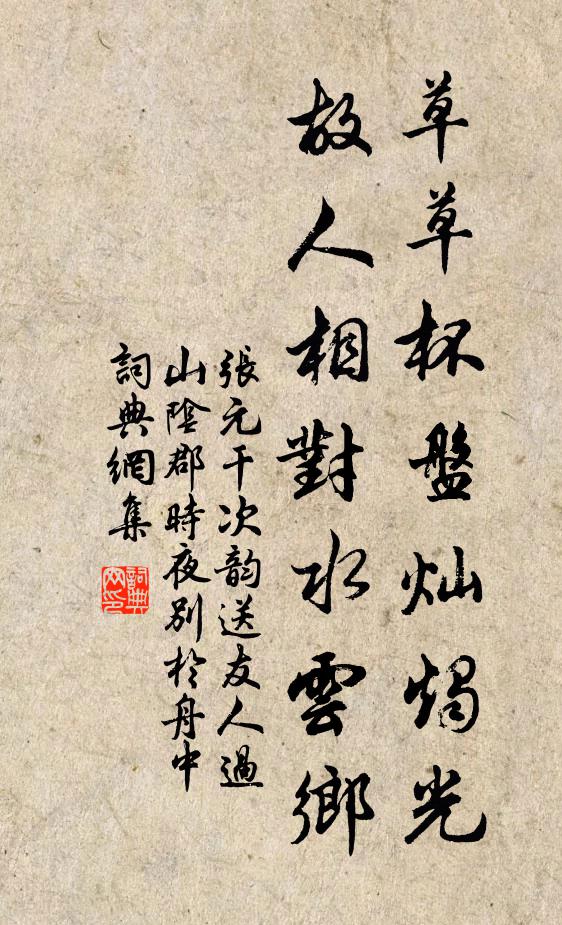 草草杯盤灿燭光
故人相對水雲鄉
張元干次韵送友人過
山陰郡時夜别於舟中
詞典網集
詞典
网印